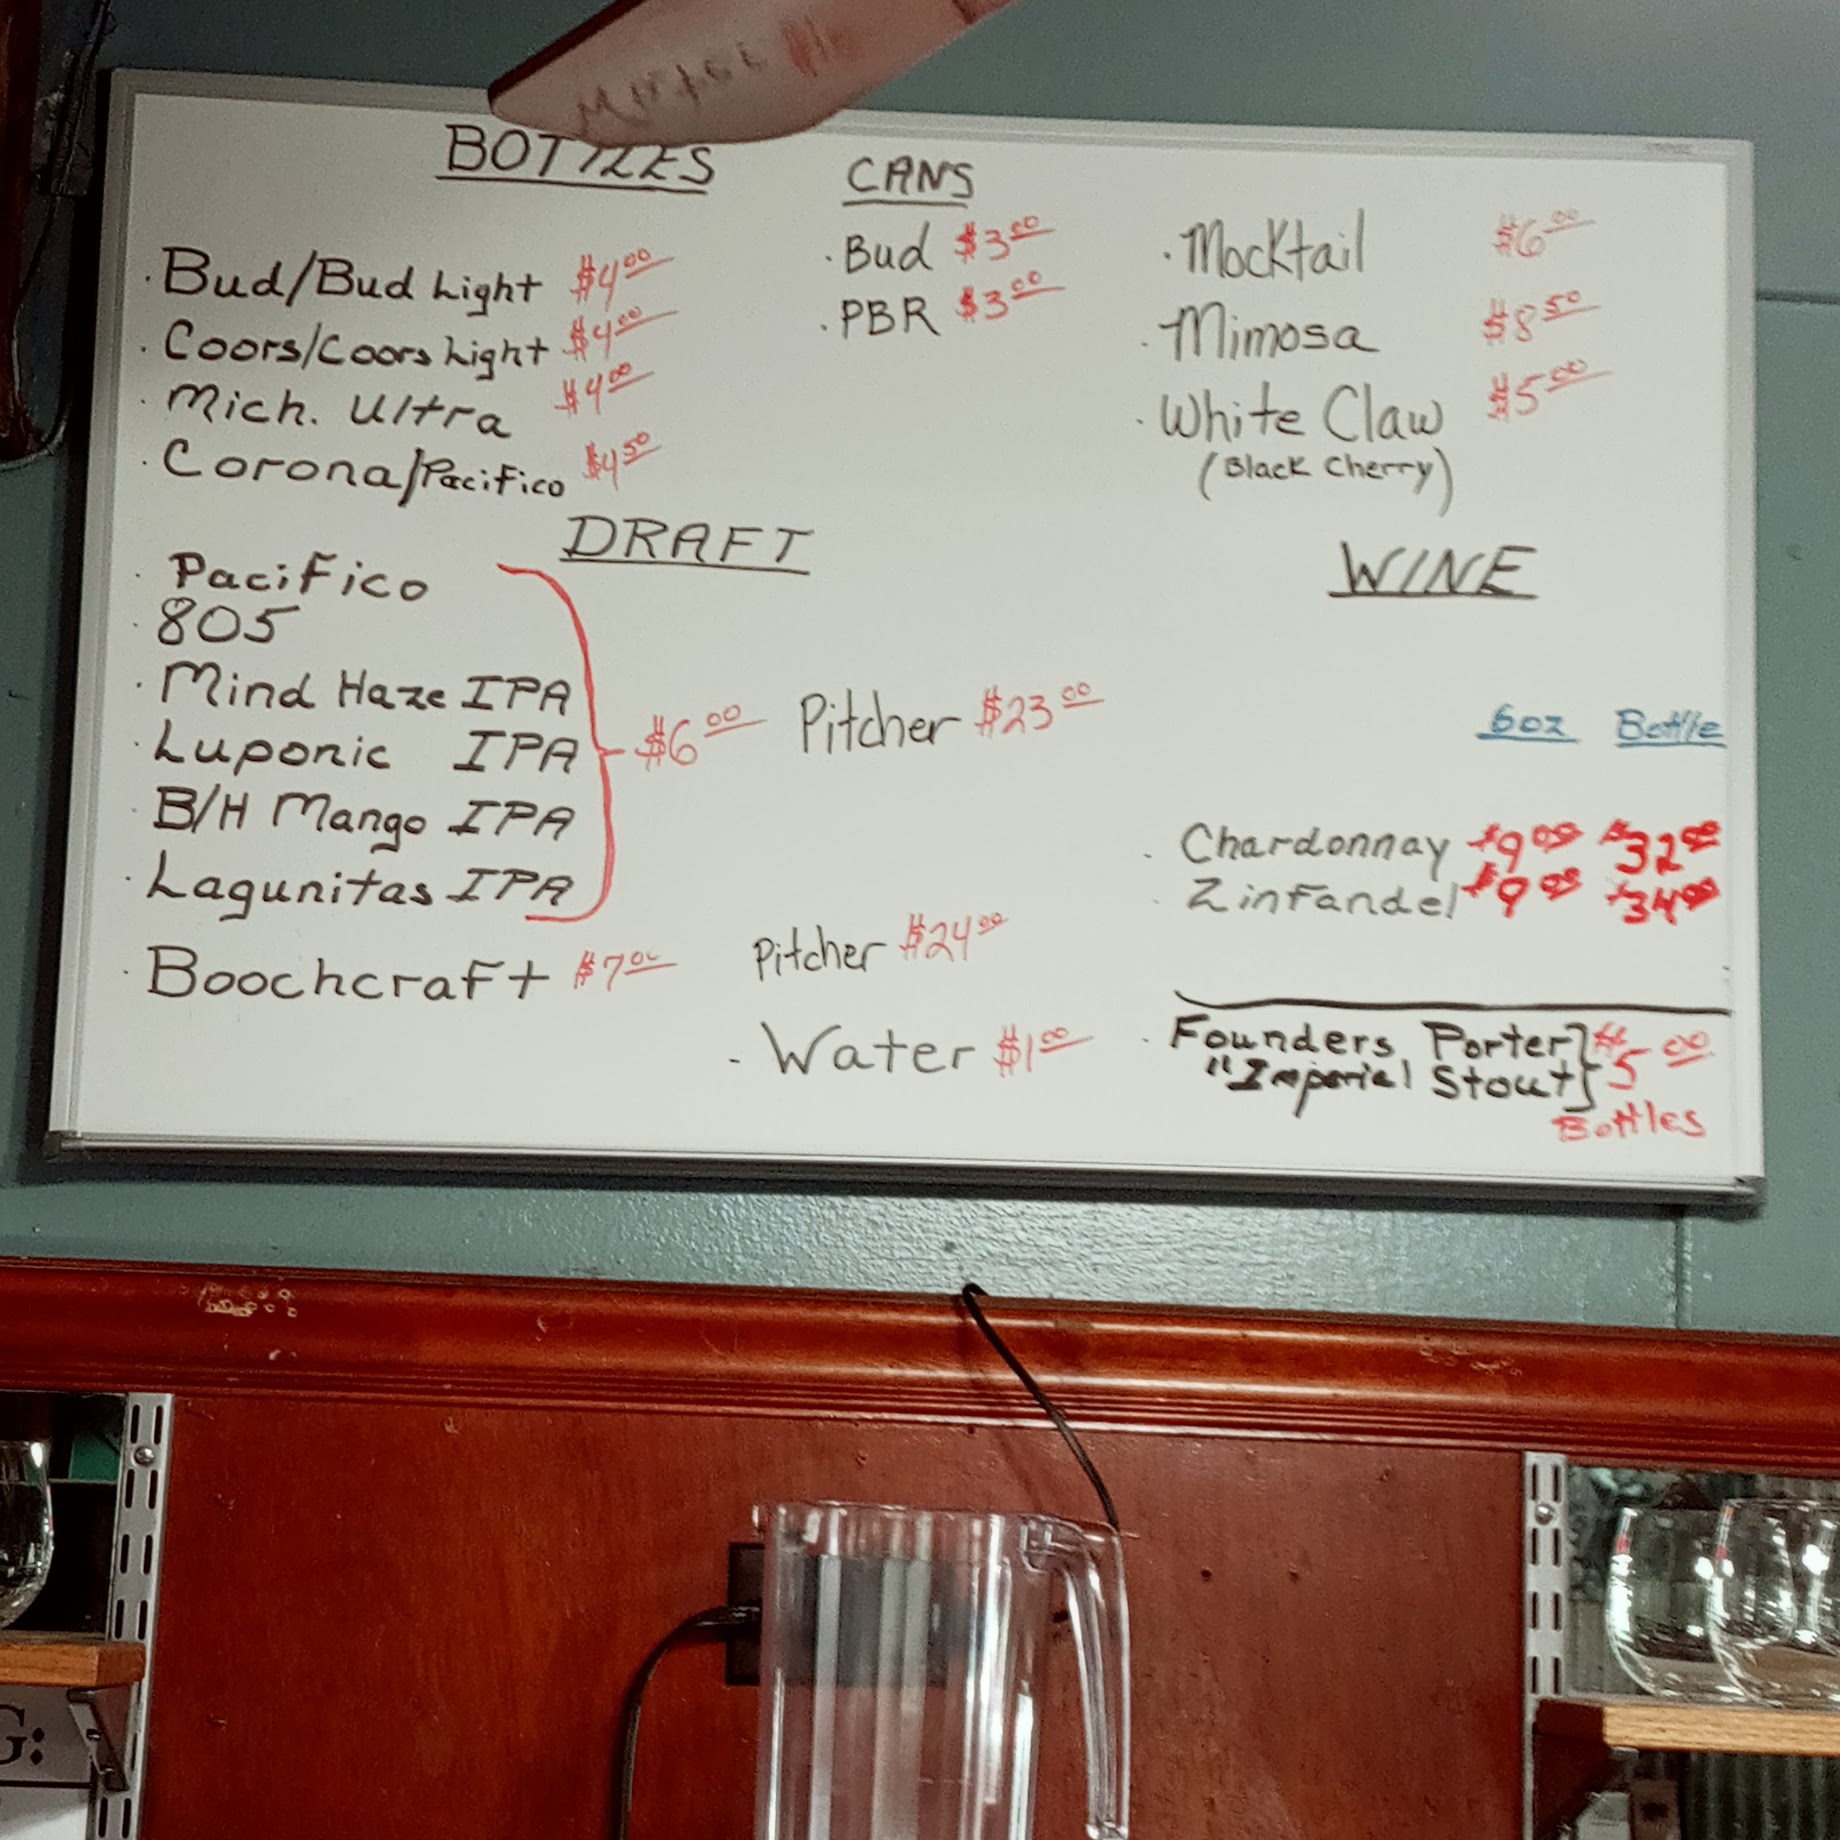 BOTTLES
· Bud/Bud Light $4.00
· Coors/Coors Light $4.00
· Mich. Ultra $4.00
· Corona/Pacifico $4.50
CANS
· Bud $3.00
· PBR $3.00
· Mocktail $6.00
· Mimosa $8.50
· White Claw $5.00
(Black Cherry)
DRAFT
· Pacifico
· 805
· Mind Haze IPA
· Luponic IPA
· B/H Mango IPA
· Lagunitas IPA
$6.00 Pitcher $23.00
· Boochcraft $7.00 Pitcher $24.00
- Water $1.00
WINE
6oz Bottle
· Chardonnay $9.00 $32.00
· Zinfandel $9.00 $34.00
· Founders Porter
" Imperial Stout
$5.00
Bottles
G: